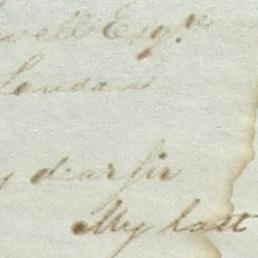 well Esqre
London
dear sir
My last